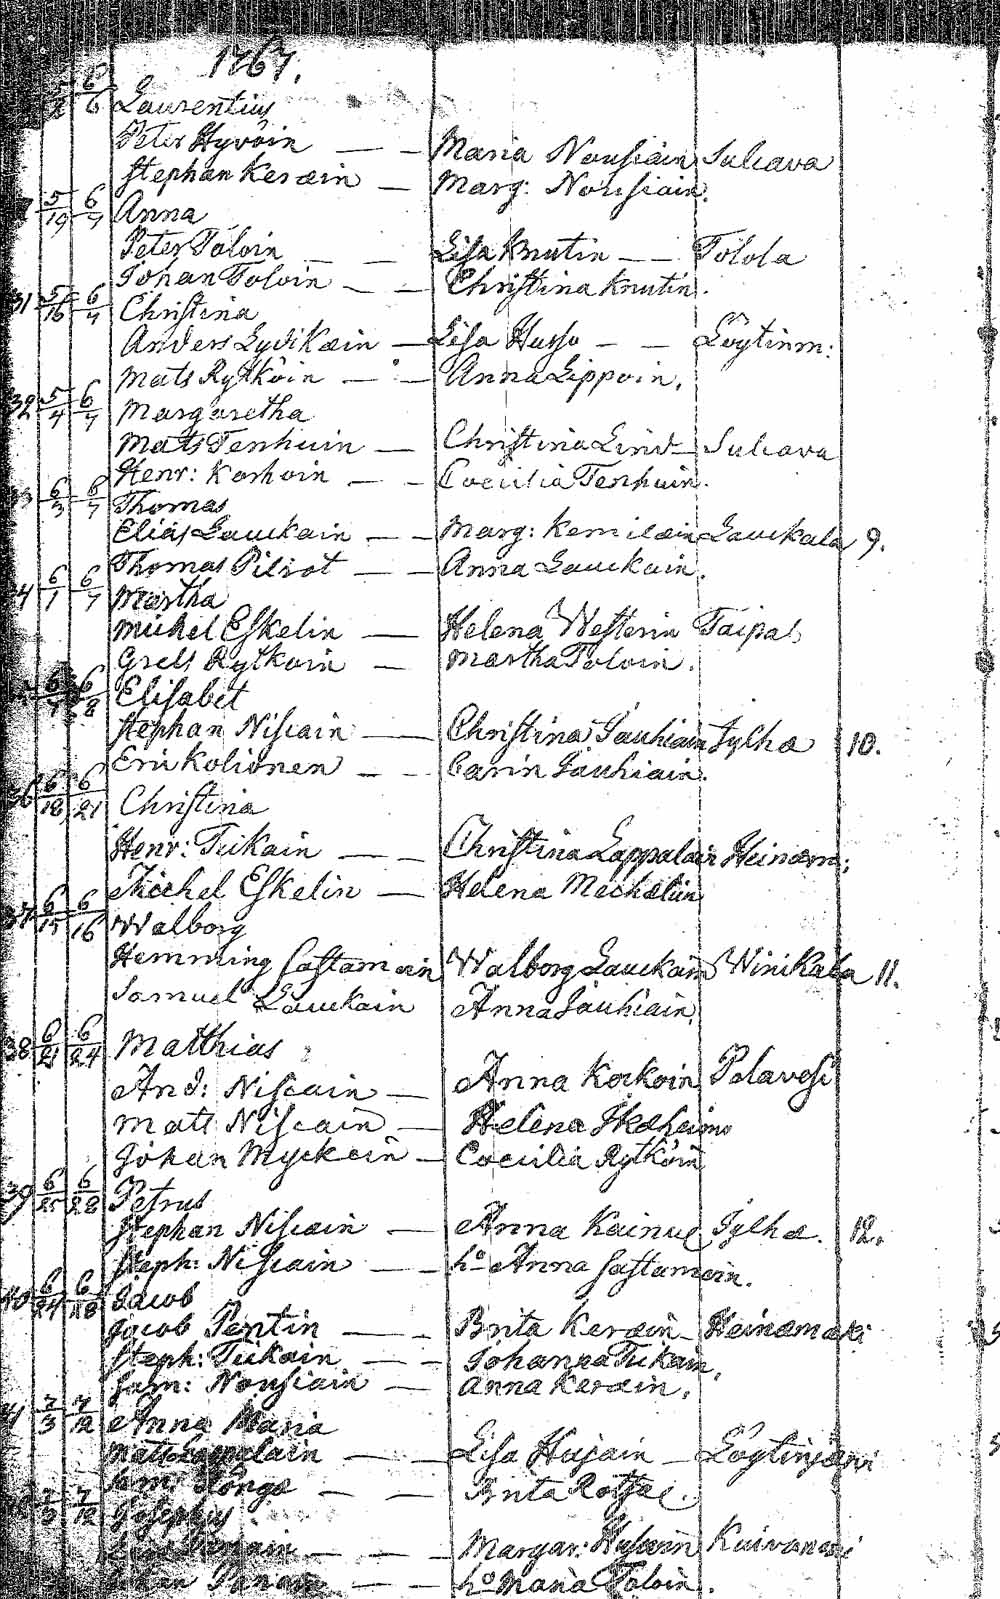 1767.
5/2 6/6 Laurentius
Peter Hyvöin — — Maria Nousiain Sulcava
Stephan Keræin — Marg: Nousiain.
5/19 6/7 Anna
Peter Toloin — — Lisa Knutin — — Tolola
Johan Toloin — — Christina Knutin.
31 5/16 6/7 Christina
Anders Lydikæin — Lisa Husso — — Löytinm:
Mats Rytköin — — Anna Lippoin.
32 5/4 6/7 Margaretha
Mats Tenhuin — Christina Lind — Sulcava
Henr: Korhoin — — Coecilia Tenhuin.
33 6/3 6/7 Thomas
Elias Lauckain — — Marg: Kemilæin Lauckala 9.
Thomas Pilvot — — Anna Lauckain.
34 6/1 6/7 Martha
Michel Eskelin — Helena Westerin Taipal
Grels Rytkoin — Martha Toloin.
6/8 Elisabet
Stephan Niscain — Christina Jauhiain Jylhæ 10.
Eric Kolionen — — Carin Jauhiain.
36 6/18 6/21 Christina
Henr: Tiikain — — Christina Lappalain Heinæm:
Michel Eskelin — Helena Mechælin
37 6/15 6/16 Walborg
Hemming Sastamoin Walborg Lauckain Winikala 11.
Samuel Lauckain Anna Jauhiain.
38 6/21 6/24 Matthias
And: Niscain — Anna Kockoin Palavesi
Matt Niscain — Helena Ikæheimo
Johan Myckein — Coecilia Rytköin
39 6/25 6/28 Petrus
Stephan Niscain — Anna Kainul Jylhæ. 12.
Steph: Niscain — — ho Anna Sastamoin.
40 6/24 6/28 Jacob
Jacob Pentin — — Brita Keræin — Heinæmæki
Steph: Tiikain — — Johanna Tiikain,
Sam: Nousiain — Anna Keræin,
41 7/3 7/12 Anna Maria
Mats Lappalain — Lisa Husain — Löytinjärvi
Sam: — — Brita
7/3 7/12 Josephus
— — Margar: Husæin Kaivomæki
— — ho Maria Toloin.